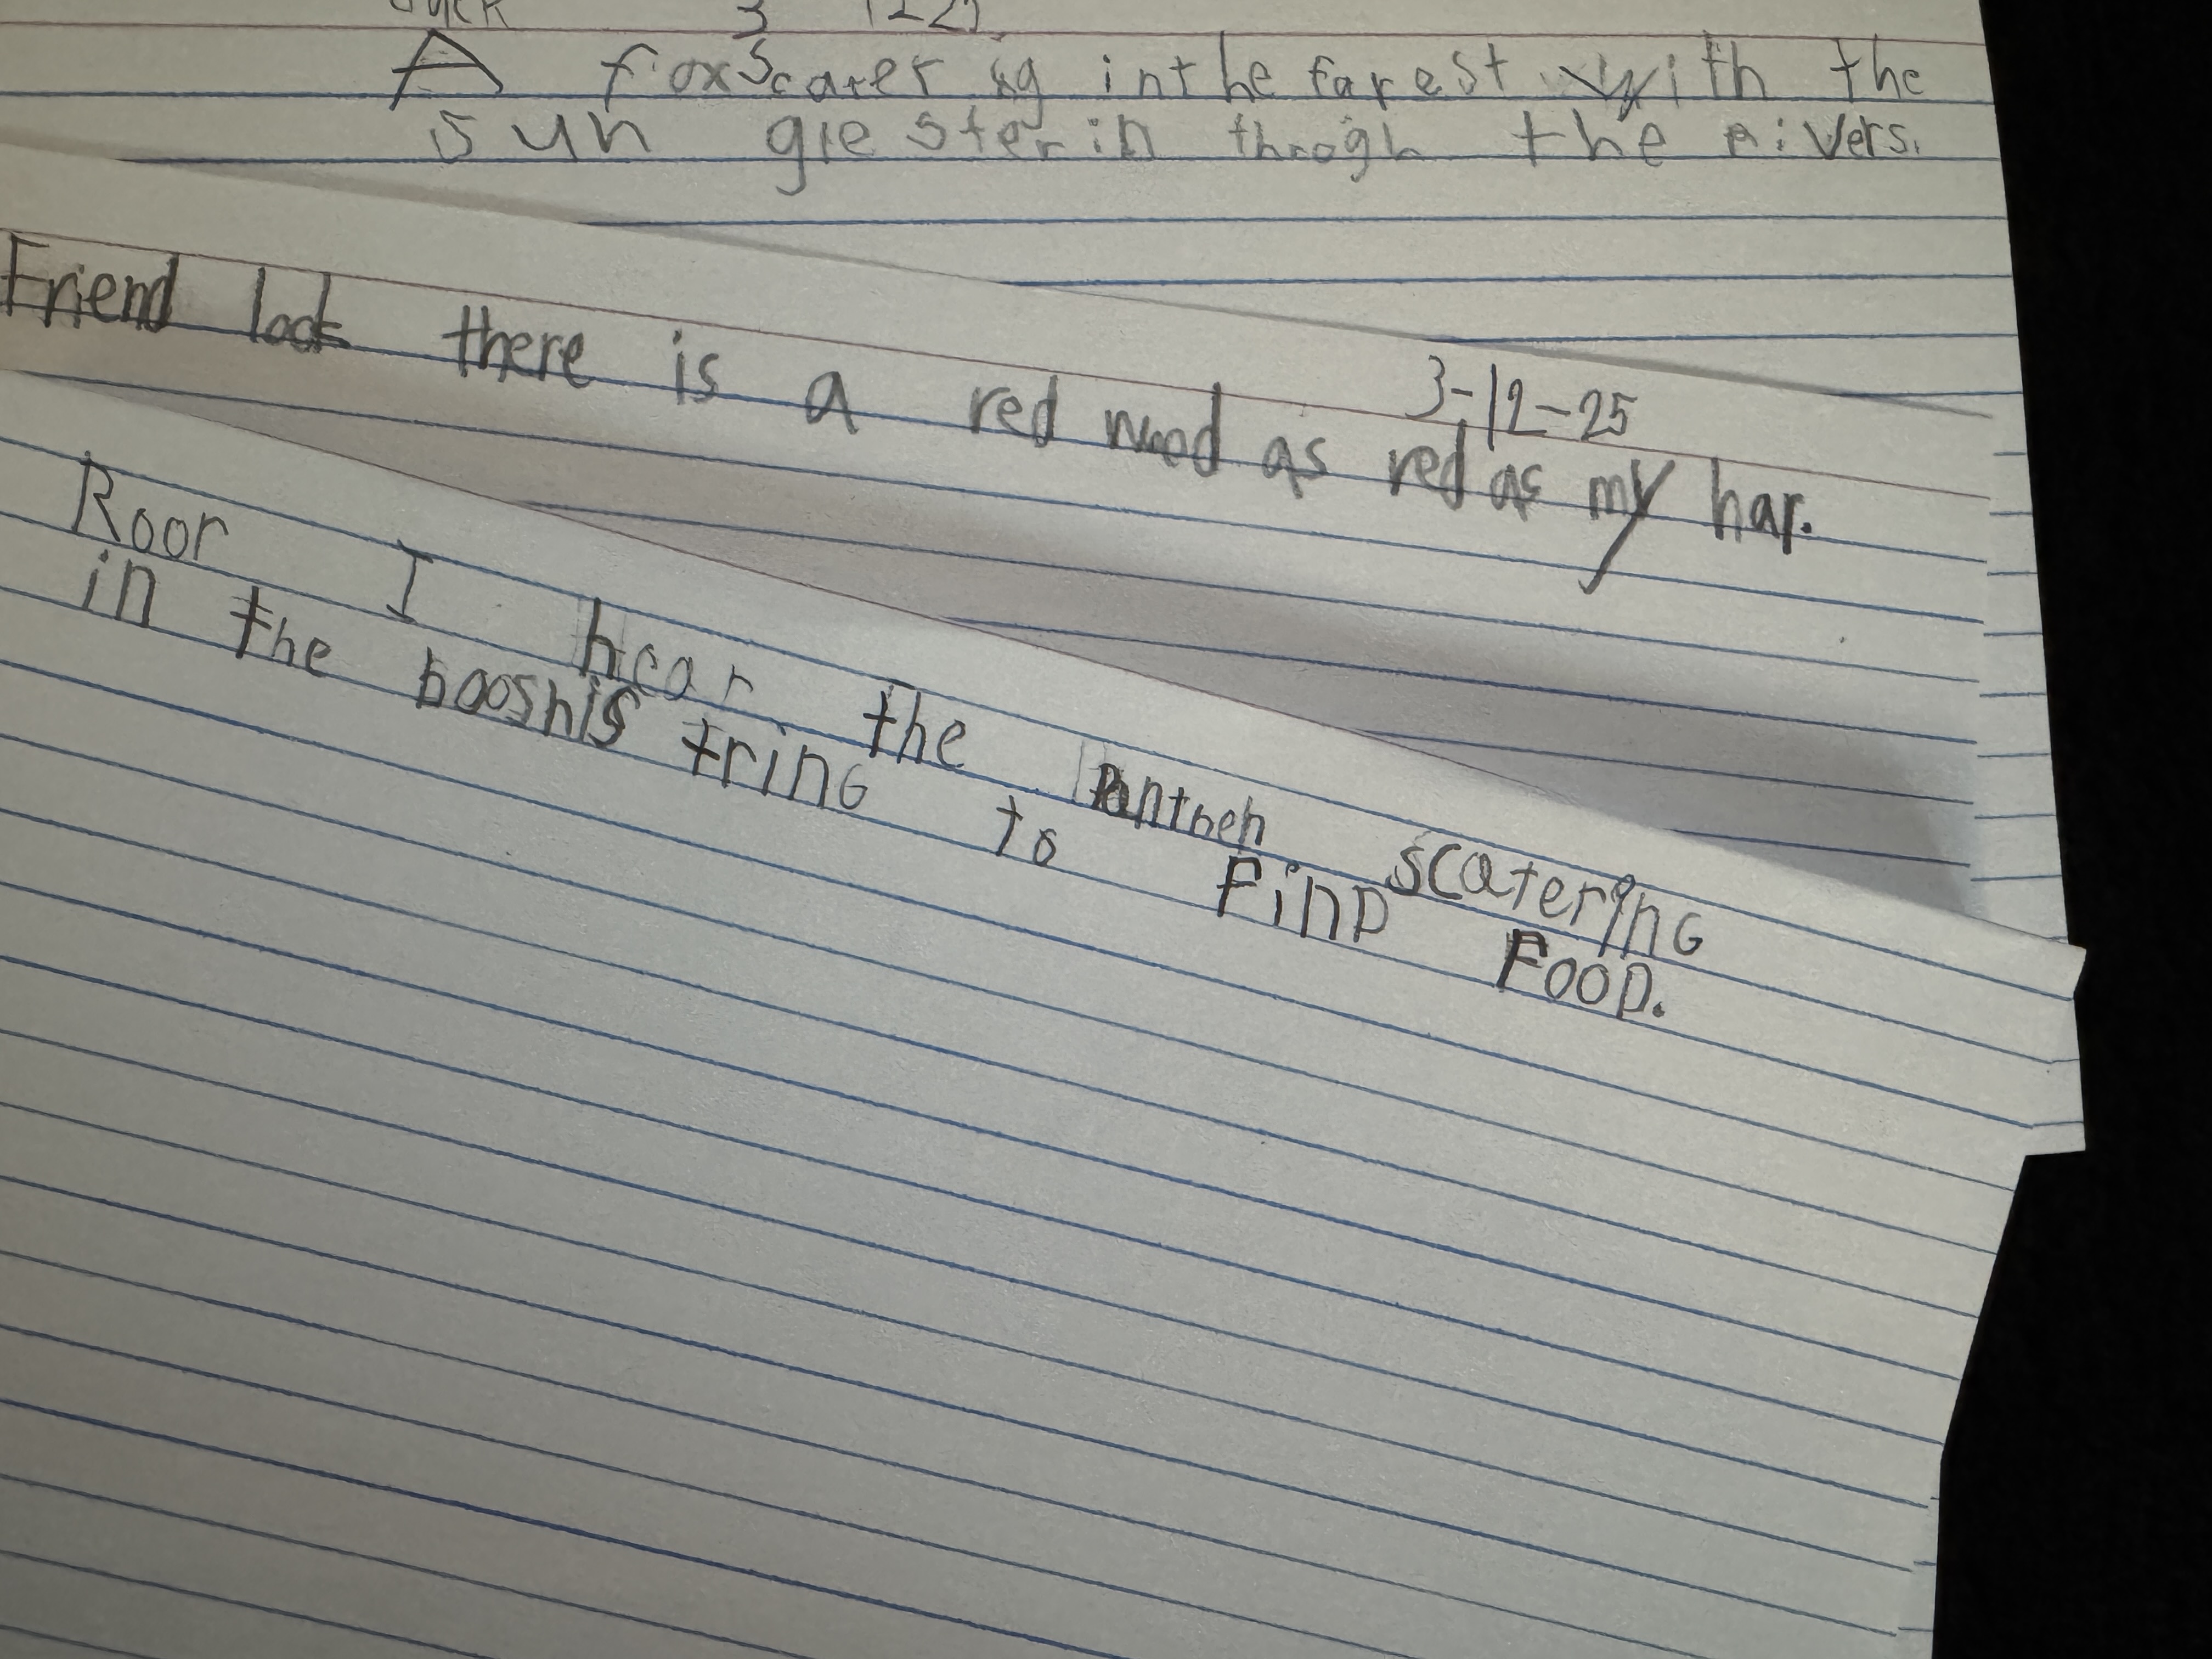 A fox scatering in the farest with the
sun gle sterin throgh the Rivers.
3-12-25
Friend look there is a red wood as red as my har.
Roor I hear the Panther scatering
in the booshis tring to find food.